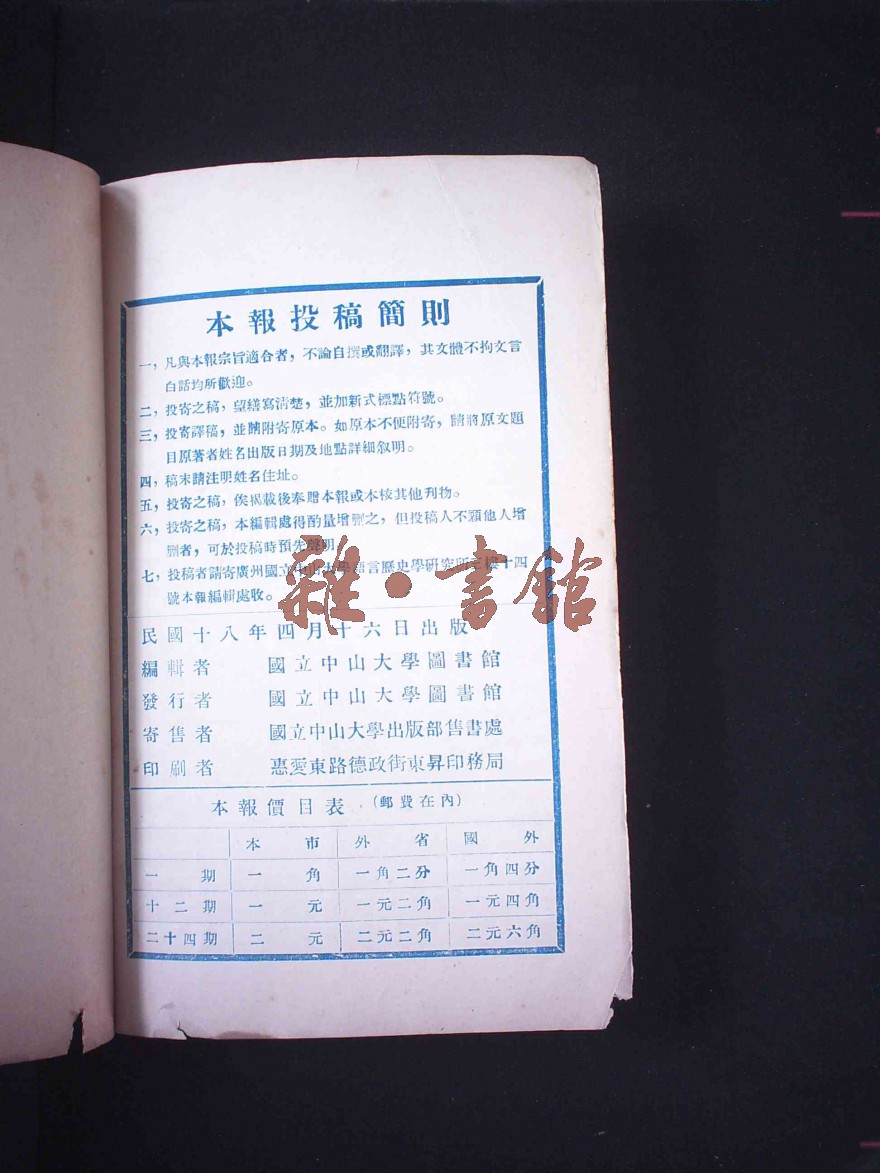 本報投稿簡則
一，凡與本報宗旨適合者，不論自撰或翻譯，其文體不拘文言
白話均所歡迎。
二，投寄之稿，望繕寫清楚，並加新式標點符號。
三，投寄譯稿，並請附寄原本。如原本不便附寄，請將原文題
目原著者姓名出版日期及地點詳細叙明。
四，稿末請注明姓名住址。
五，投寄之稿，俟揭載後奉贈本報或本校其他刊物。
六，投寄之稿，本編輯處得酌量增刪之，但投稿人不願他人增
刪者，可於投稿時預先聲明
七，投稿者請寄廣州國立中山大學語言歷史學研究所樓十四
號本報編輯處收。
雜·書館
民國十八年四月十六日出版
編輯者 國立中山大學圖書館
發行者 國立中山大學圖書館
寄售者 國立中山大學出版部售書處
印刷者 惠愛東路德政街東昇印務局
本報價目表（郵費在內）
本市 外省 國外
一期 一角 一角二分 一角四分
十二期 一元 一元二角 一元四角
二十四期 二元 二元二角 二元六角